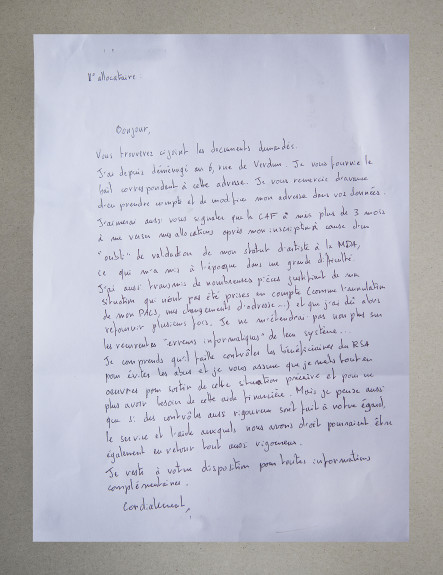 N° allocataire
Bonjour,
Vous trouverez ci-joint les documents demandés.
J'ai depuis déménagé au 6, rue de Verdun. Je vous fournie le
bail correspondant à cette adresse. Je vous remercie d'avance
d'en prendre compte et de modifier mon adresse dans vos données.
J'aimerai aussi vous signaler que la CAF a mis plus de 3 mois
à me verser mes allocations après mon inscription à cause d'un
"oubli" de validation de mon statut d'artiste à la MDA,
ce qui m'a mis à l'époque dans une grande difficulté.
J'ai aussi transmis de nombreuses pièces justifiant de ma
situation qui n'ont pas été prises en compte (comme l'annulation
de mon PACS, mes changements d'adresse...) et que j'ai dû alors
refournir plusieurs fois. Je ne m'étendrai pas non plus sur
les récurrentes "erreurs informatiques" de leur système...
Je comprends qu'il faille contrôler les bénéficiaires du RSA
pour éviter les abus et je vous assure que je mets tout en
oeuvre pour sortir de cette situation précaire et pour ne
plus avoir besoin de cette aide financière. Mais je pense aussi
que si des contrôles aussi rigoureux sont fait à votre égard,
le service et l'aide auxquels nous avons droit pourraient être
également en retour tout aussi rigoureux.
Je reste à votre disposition pour toutes informations
complémentaires.
Cordialement,